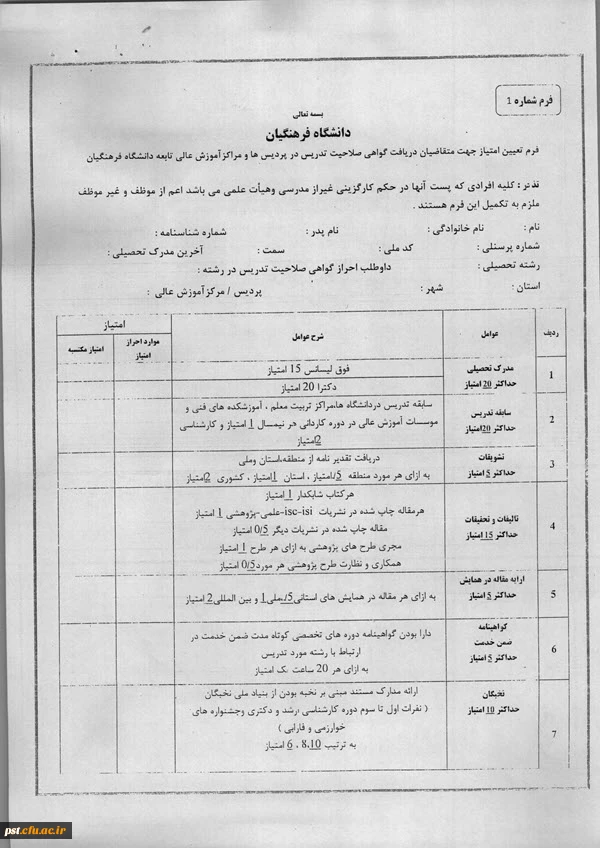 فرم شماره 1
بسمه تعالی
دانشگاه فرهنگیان
فرم تعیین امتیاز جهت متقاضیان دریافت گواهی صلاحیت تدریس در پردیس ها و مراکز آموزش عالی تابعه دانشگاه فرهنگیان
تذکر : کلیه افرادی که پست آنها در حکم کارگزینی غیراز مدرسی وهیأت علمی می باشد اعم از موظف و غیر موظف
ملزم به تکمیل این فرم هستند .
نام : نام خانوادگی : نام پدر : شماره شناسنامه :
شماره پرسنلی : کد ملی : سمت : آخرین مدرک تحصیلی :
رشته تحصیلی : داوطلب احراز گواهی صلاحیت تدریس در رشته :
استان : شهر : پردیس / مرکزآموزش عالی :
ردیف عوامل شرح عوامل امتیاز
موارد احراز امتیاز امتیاز مکتسبه
1 مدرک تحصیلی حداکثر 20 امتیاز
فوق لیسانس 15 امتیاز
دکترا 20 امتیاز
2 سابقه تدریس حداکثر 20امتیاز
سابقه تدریس دردانشگاه ها،مراکز تربیت معلم ، آموزشکده های فنی و
موسسات آموزش عالی در دوره کاردانی هر نیمسال 1 امتیاز و کارشناسی
2امتیاز
3 تشویقات حداکثر 5 امتیاز
دریافت تقدیر نامه از منطقه،استان وملی
به ازای هر مورد منطقه 5/امتیاز ، استان 1امتیاز ، کشوری 2امتیاز
4 تالیفات و تحقیقات حداکثر 15 امتیاز
هرکتاب شابکدار 1 امتیاز
هرمقاله چاپ شده در نشریات isc-isi-علمی-پژوهشی 1 امتیاز
مقاله چاپ شده در نشریات دیگر 0/5 امتیاز
مجری طرح های پژوهشی به ازای هر طرح 1 امتیاز
همکاری و نظارت طرح پژوهشی هر مورد 0/5 امتیاز
5 ارایه مقاله در همایش حداکثر 5 امتیاز
به ازای هر مقاله در همایش های استانی 5/،ملی 1 و بین المللی 2 امتیاز
6 گواهینامه ضمن خدمت حداکثر 5 امتیاز
دارا بودن گواهینامه دوره های تخصصی کوتاه مدت ضمن خدمت در
ارتباط با رشته مورد تدریس
به ازای هر 20 ساعت یک امتیاز
7 نخبگان حداکثر 10 امتیاز
ارائه مدارک مستند مبنی بر نخبه بودن از بنیاد ملی نخبگان
( نفرات اول تا سوم دوره کارشناسی ،رشد و دکتری وجشنواره های
خوارزمی و فارابی )
به ترتیب 8،10 ، 6 امتیاز
pst.cfu.ac.ir